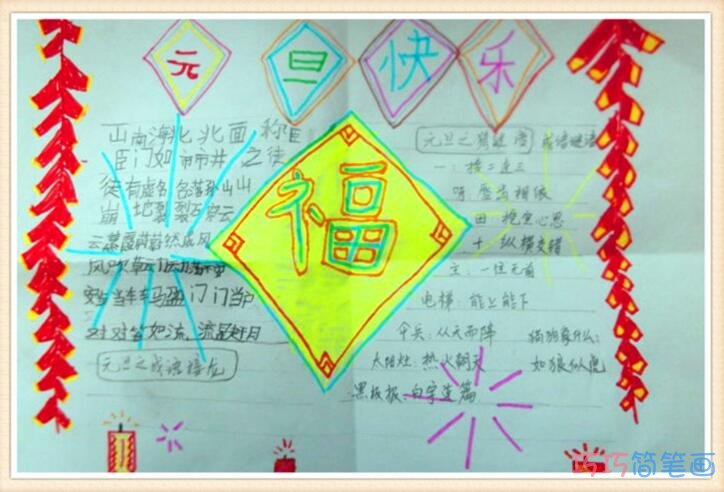 元旦快乐
福
山南海北北面称臣
臣门如市市井之徒
徒有虚名名落孙山山
崩地裂裂石穿云
云蒸霞蔚蔚然成风
风吹草
安当车车马盈门门当户
对对答如流流星赶月
元旦之成语接龙
元旦之猜谜语 成语谜语
一：接二连三
呀：唇齿相依
田：挖空心思
十：纵横交错
主：一往无前
电梯：能上能下
伞兵：从天而降
太阳灶：热火朝天
黑板报：白字连篇
猫狗象什么：
如狼似虎
巧巧简笔画